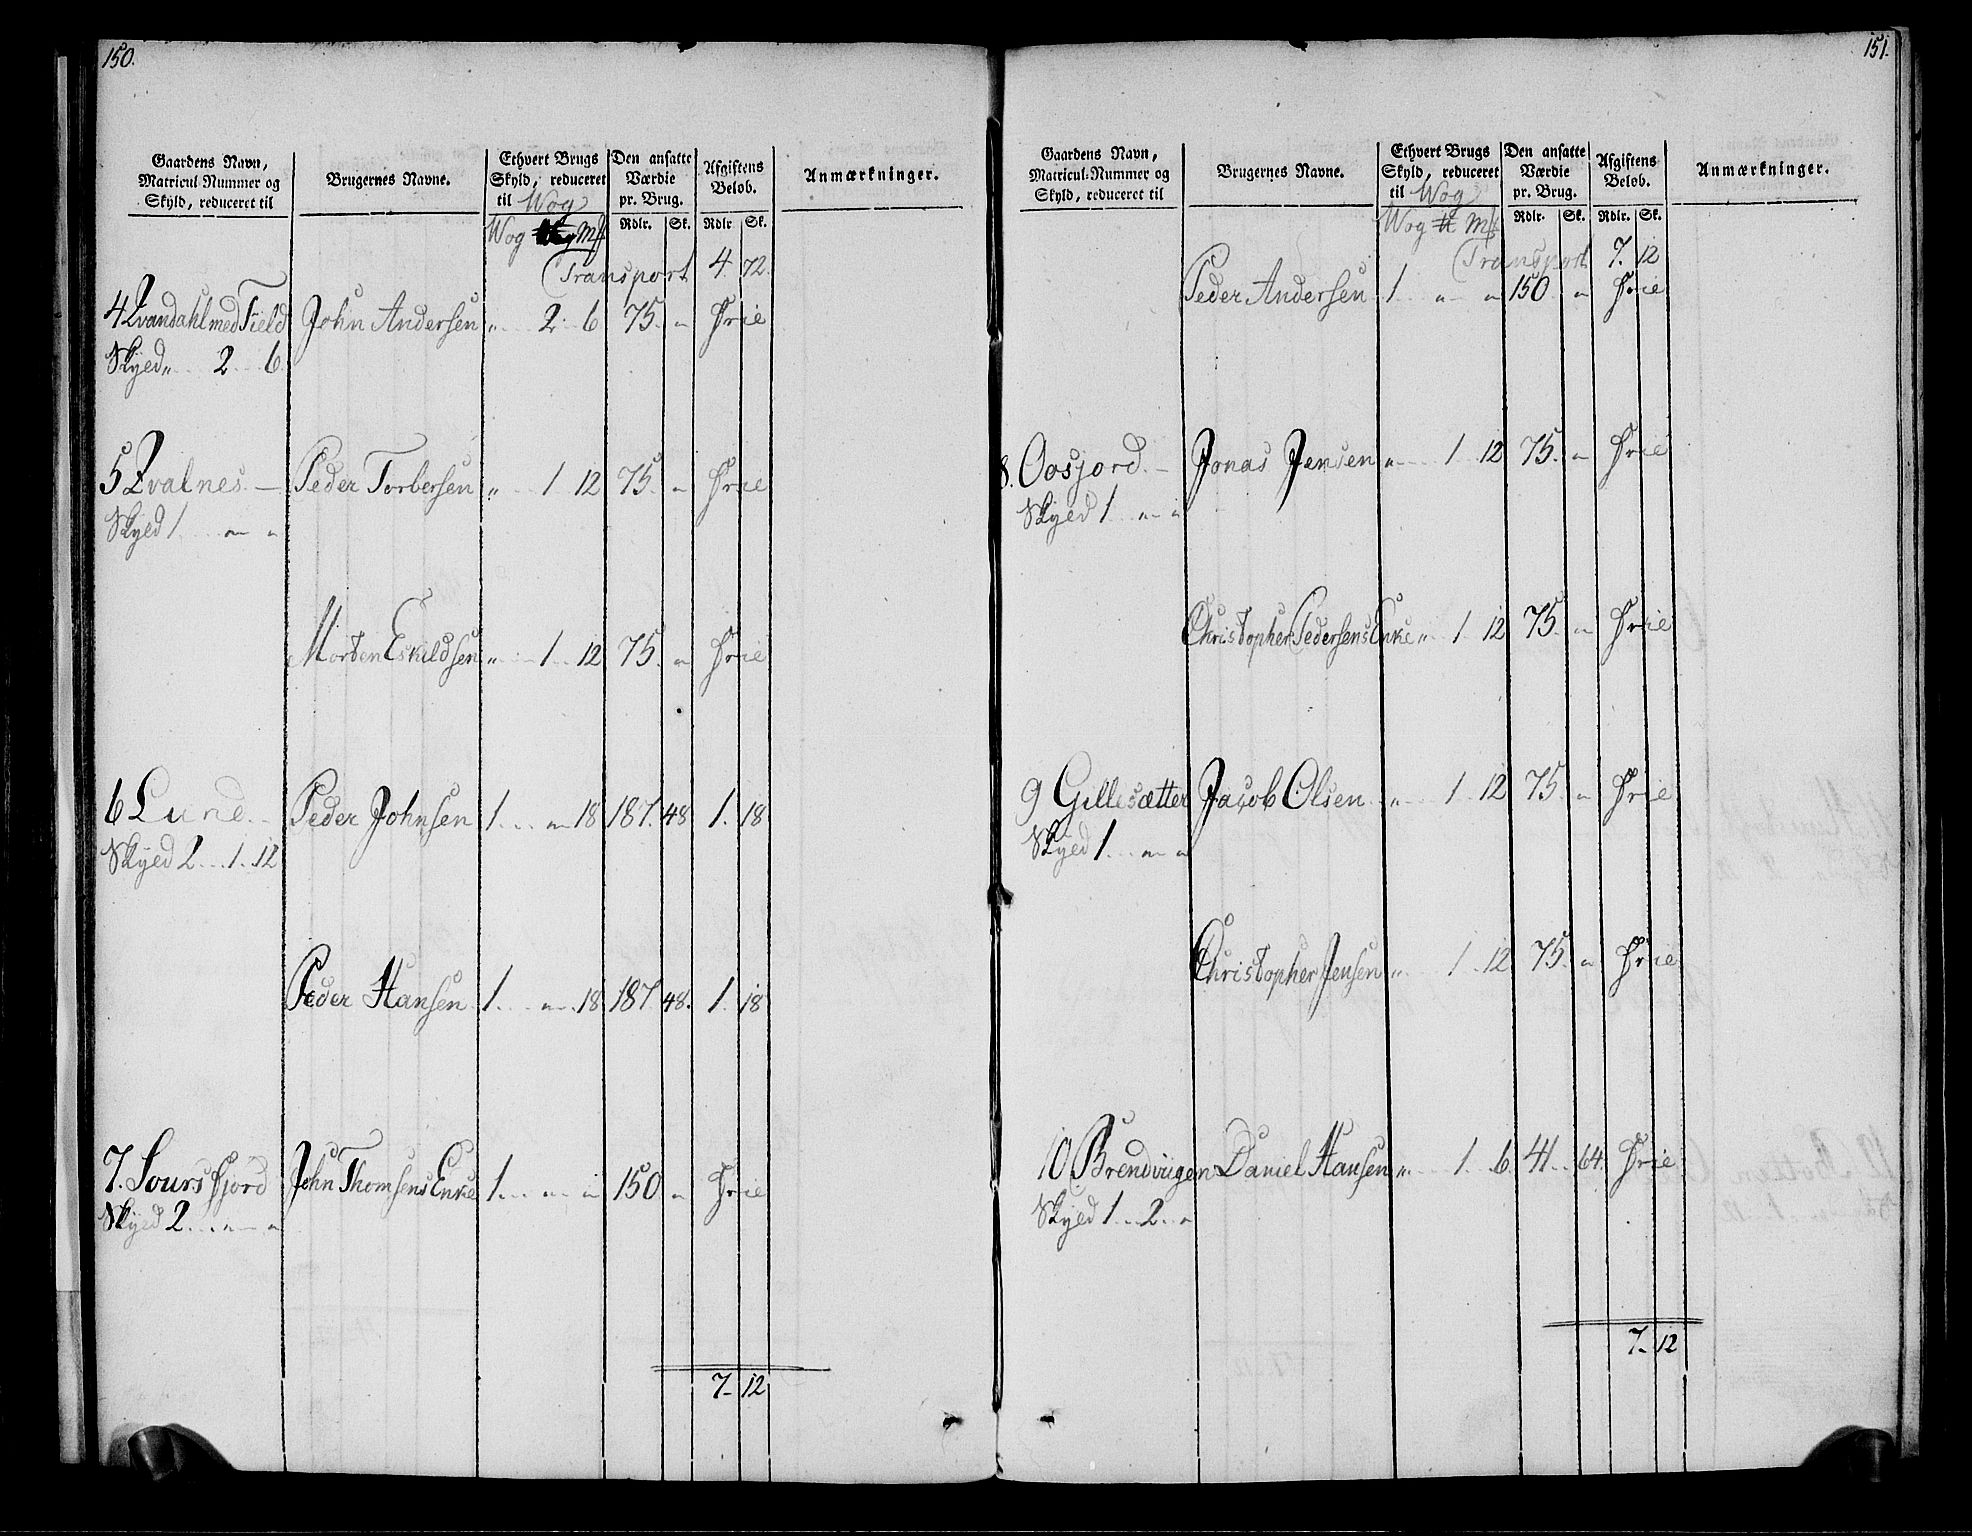 150.
Gaardens Navn, Matricul-Nummer og Skyld, reduceret til
Brugernes Navne.
Ethvert Brugs Skyld, reduceret til Wog
Den ansatte Værdie pr. Brug.
Afgiftens Beløb.
Anmærkninger.
Wog M# Rdlr. Sk. Rdlr Sk.
Transport 4. 72.
4 Qvandahl med Field John Andersen „ 2. 6. 75. „ Frie
Skyed „ 2 6.
5 Qvalnes Peder Torbersen „ 1 12 75. „ Frie
Skyed 1 „ „
Morten Eskildsen „ 1 12 75. „ Frie
6 Lund Peder Johnsen 1 „ 18 187. 48 1. 18
Skyed 2 1 12
Peder Hansen 1 „ 18 187. 48. 1. 18
7. Soursfjord John Thomsens Enke 1 „ „ 150 „ Frie
Skyed 2 „ „
7 12
151.
Gaardens Navn, Matricul-Nummer og Skyld, reduceret til
Brugernes Navne.
Ethvert Brugs Skyld, reduceret til Wog
Den ansatte Værdie pr. Brug.
Afgiftens Beløb.
Anmærkninger.
Wog # M# Rdlr. Sk. Rdlr. Sk.
Transport 7. 12
Peder Andersen 1 „ „ 150 „ Frie
8. Oosjord Jonas Jensen „ 1 12 75. „ Frie
Skyed 1 „ „
Christopher Pedersens Enke „ 1 12 75. „ Frie
9 Gillesætter Jacob Olsen „ 1 12 75. „ Frie
Skyed 1 „ „
Christopher Jensen „ 1 12 75. „ Frie
10 Brendviigen Daniel Hansen „ 1 6 41 64. Frie
Skyed 1 2 „
7 12